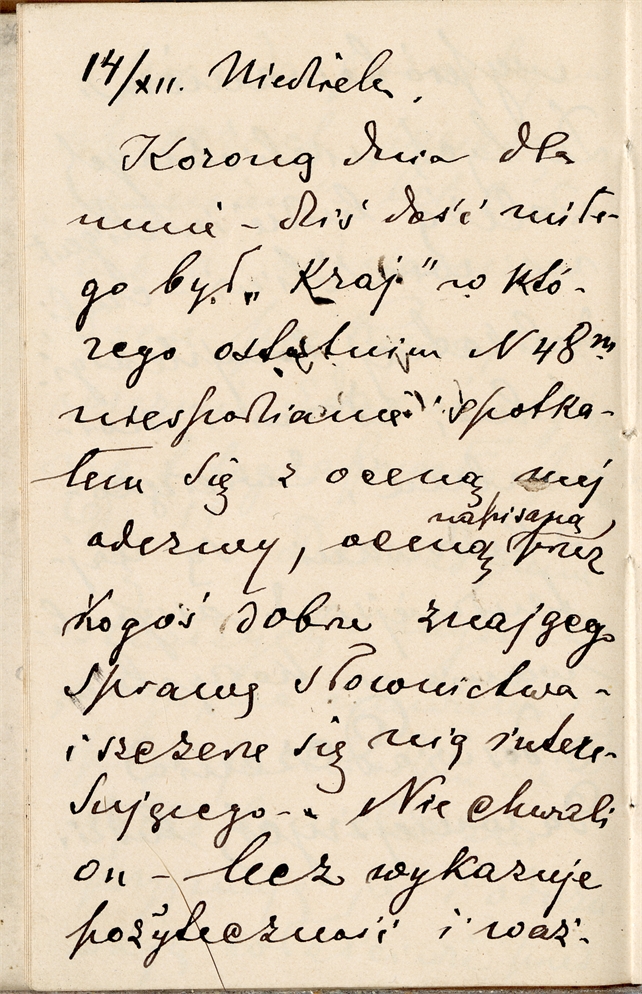 14/XII. Niedziela.
Koroną dnia dla
mnie – dziś dość miłe-
go był „Kraj" w któ-
rego ostatnim N 48m
niespodzianie spotka-
łem się z oceną mej
napisaną
odezwy, oceną przez
kogoś dobrze znającego
sprawę słownictwa –
i szczerze się nią intere-
sującego – . Nie chwali
on – lecz wykazuje
pożyteczność i waż-